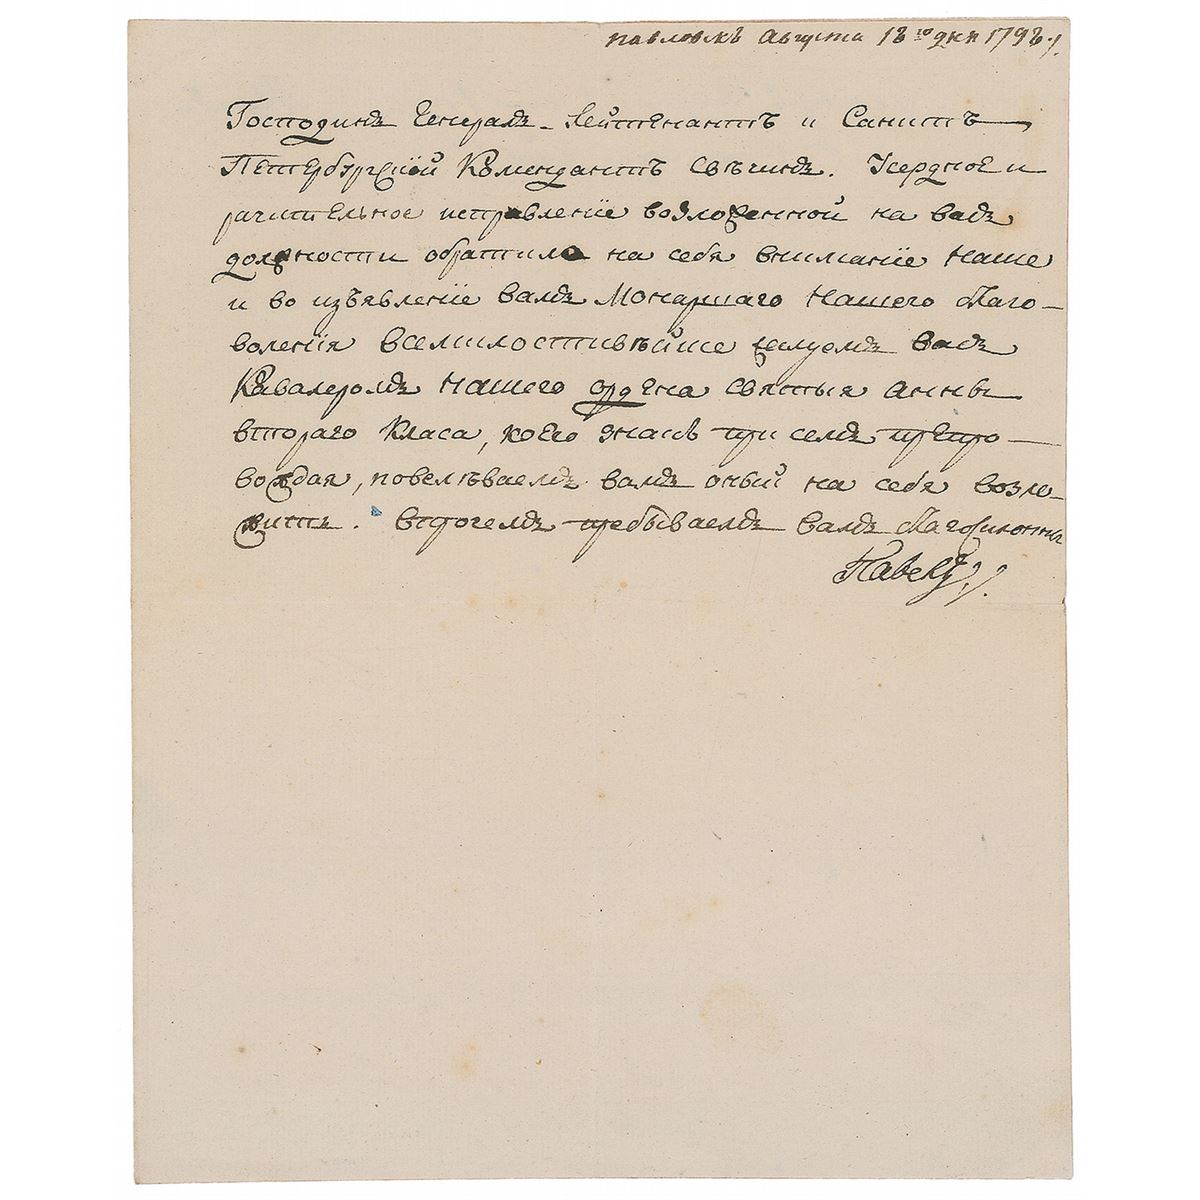 Павловскъ Августа 18го дня 1798.
Господинъ Генералъ-Лейтенантъ и Санктъ
Петербургскій Комендантъ Свѣчинъ. Усердное и
рачительное исправленіе возложенной на васъ
должности обратило на себя вниманіе Наше
и во изъявленіе вамъ Монаршаго Нашего благо-
воленія всемилостивѣйше жалуемъ васъ
Кавалеромъ Нашего ордена Святыя Анны
втораго Класа, коего знакъ при семъ препро-
вождая, повелѣваемъ вамъ оный на себя возло-
жить. Впрочемъ пребываемъ вамъ благосклонны
Павелъ